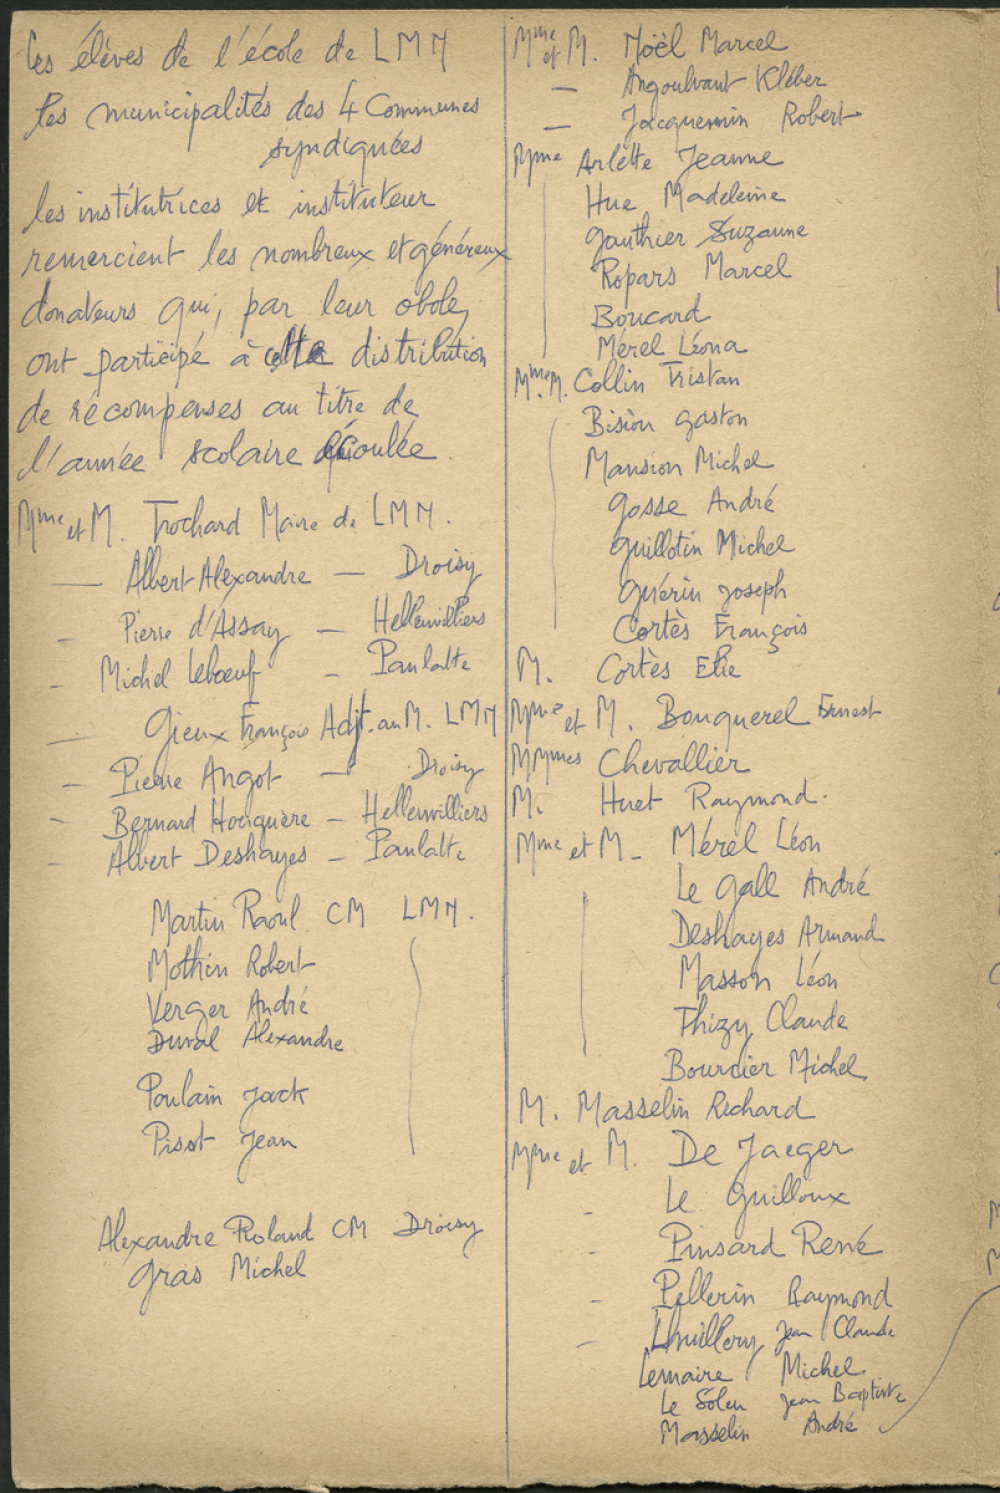 Les élèves de l'école de LMM
Les municipalités des 4 Communes
syndiquées
les institutrices et instituteur
remercient les nombreux et généreux
donateurs qui, par leur obole,
ont participé à cette distribution
de récompenses au titre de
l'année scolaire écoulée.
Mme et M. Trochard Maire de LMM.
— Albert Alexandre — Droisy
— Pierre d'Assay — Hellenvilliers
— Michel Leboeuf — Panlatte
— Gieux François Adjt. au M. LMM
— Pierre Angot — Droisy
— Bernard Houquère — Hellenvilliers
— Albert Deshayes — Panlatte
Martin Raoul CM LMM.
Mothin Robert
Verger André
Duval Alexandre
Poulain Jack
Pisot Jean
Alexandre Roland CM Droisy
Gras Michel
Mme et M. Noël Marcel
— Angoulvant Kléber
— Jacquemin Robert
Mme Arlette Jeanne
Hue Madeleine
Gauthier Suzanne
Ropars Marcel
Boucard
Mérel Léona
Mme M. Collin Tristan
Bision Gaston
Mansion Michel
Gosse André
Guillotin Michel
Guérin Joseph
Cortès François
M. Cortès Elie
Mme et M. Bouquerel Ernest
MMmes Chevallier
M. Huet Raymond.
Mme et M. Mérel Léon
Le Gall André
Deshayes Armand
Masson Léon
Thizy Claude
Bourcier Michel
M. Masselin Richard
Mme et M. De Jaeger
- Le Guilloux
- Pinsard René
- Pellerin Raymond
- Lhuillery Jean Claude
Lemaire Michel
Le Solen Jean Baptiste
Masselin André